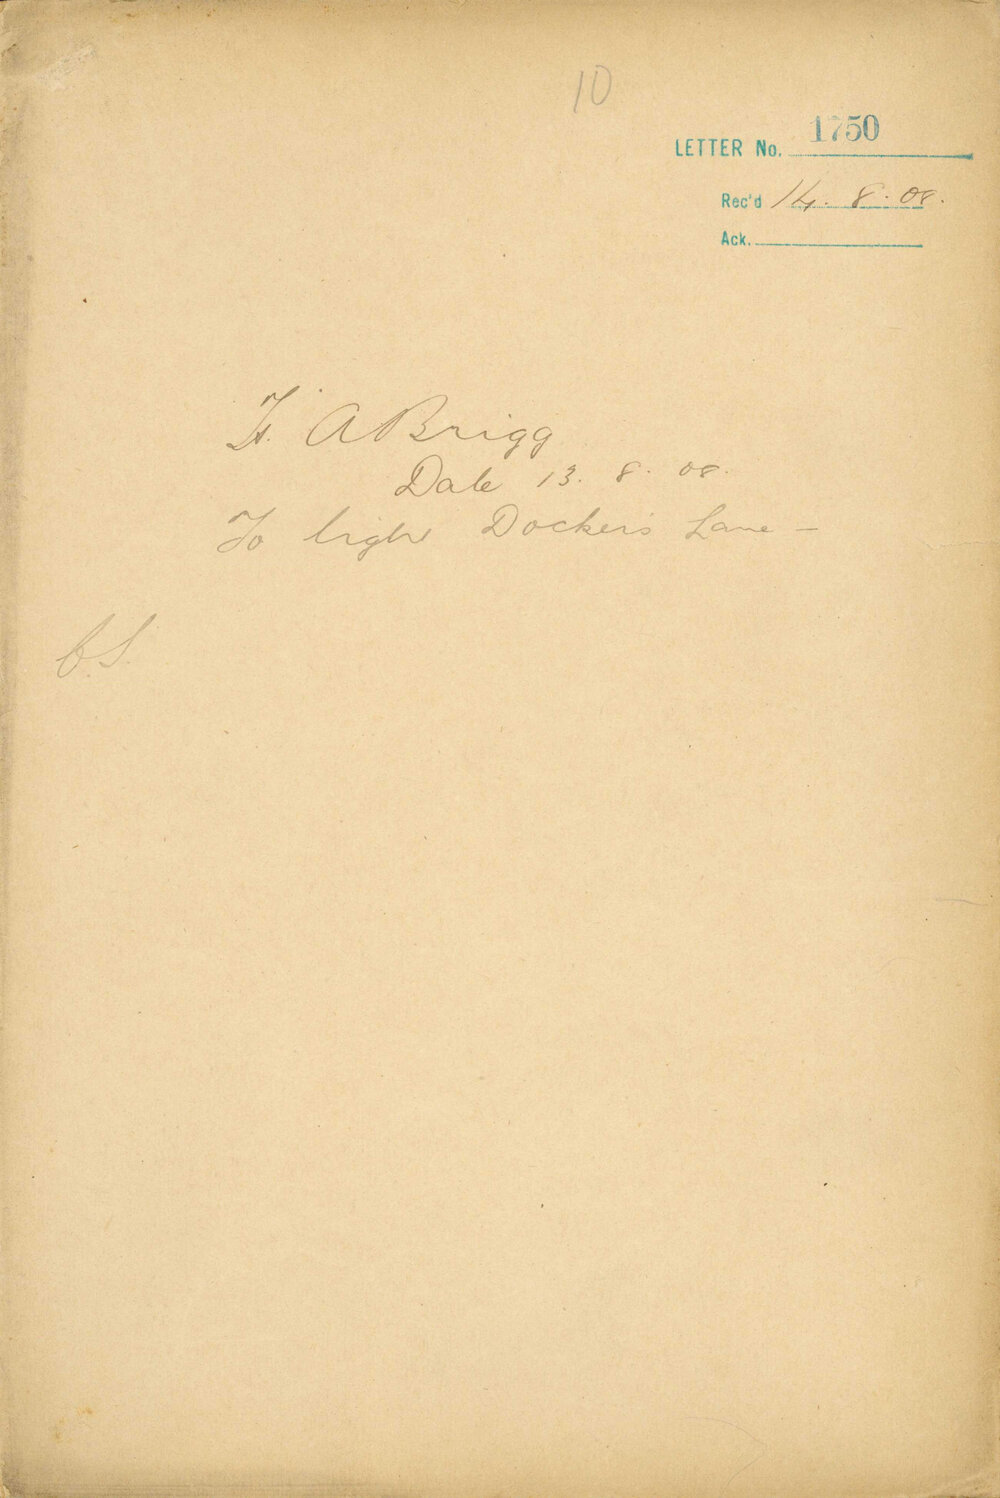 10
LETTER No. 1750
Rec'd 14. 8. 08.
Ack.
A Brigg
Date 13. 8. 08.
To light Docker's Lane —